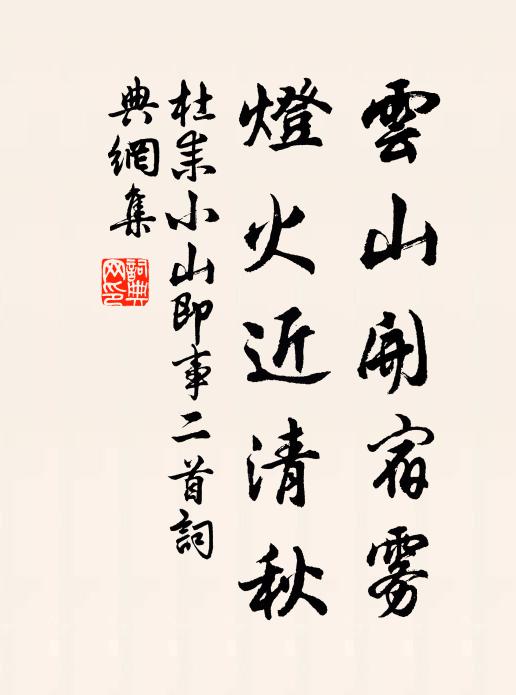 雲山開宿霧
燈火近清秋
杜耒小山即事二首詞
典網集
詞典
网印